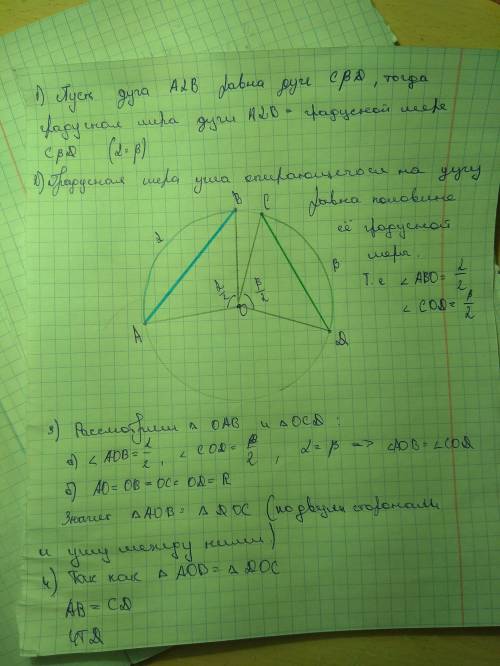 1) Пусть дуга AαB равна дуге CβD, тогда
градусная мера дуги AαB = градусной мере
CβD (α = β)
2) Градусная мера угла опирающегося на дугу
равна половине
её градусной
меры.
Т.е ∠ ABO = α/2
∠ COD = β/2
B C
α
β
α/2 β/2
O
A
D
3) Рассмотрим △ OAB и △ OCD :
а) ∠ AOB = α/2 , ∠ COD = β/2 , α = β => ∠AOB = ∠COD
б) AO = OB = OC = OD = R
Значит △ AOB = △ DOC (по двум сторонам
и углу между ними)
4) Так как △ AOB = △ DOC
AB = CD
ЧТД